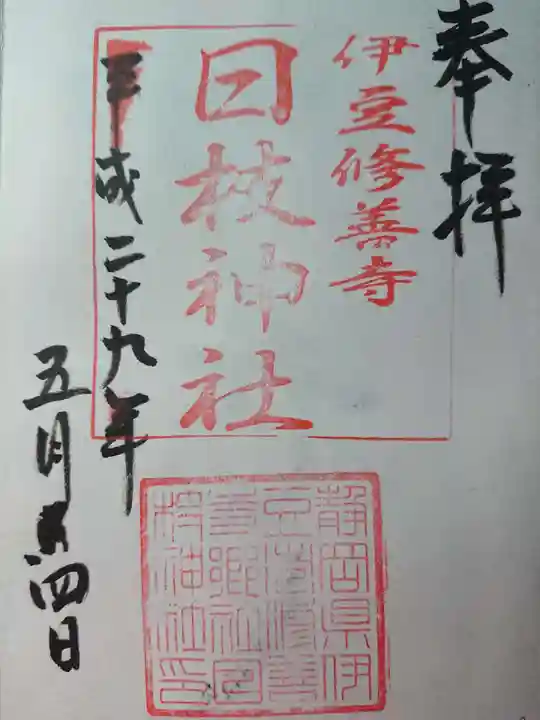 奉拝
伊豆修善寺
日枝神社
平成二十九年
五月四日
静岡県伊
豆市修善
寺郷社日
枝神社印